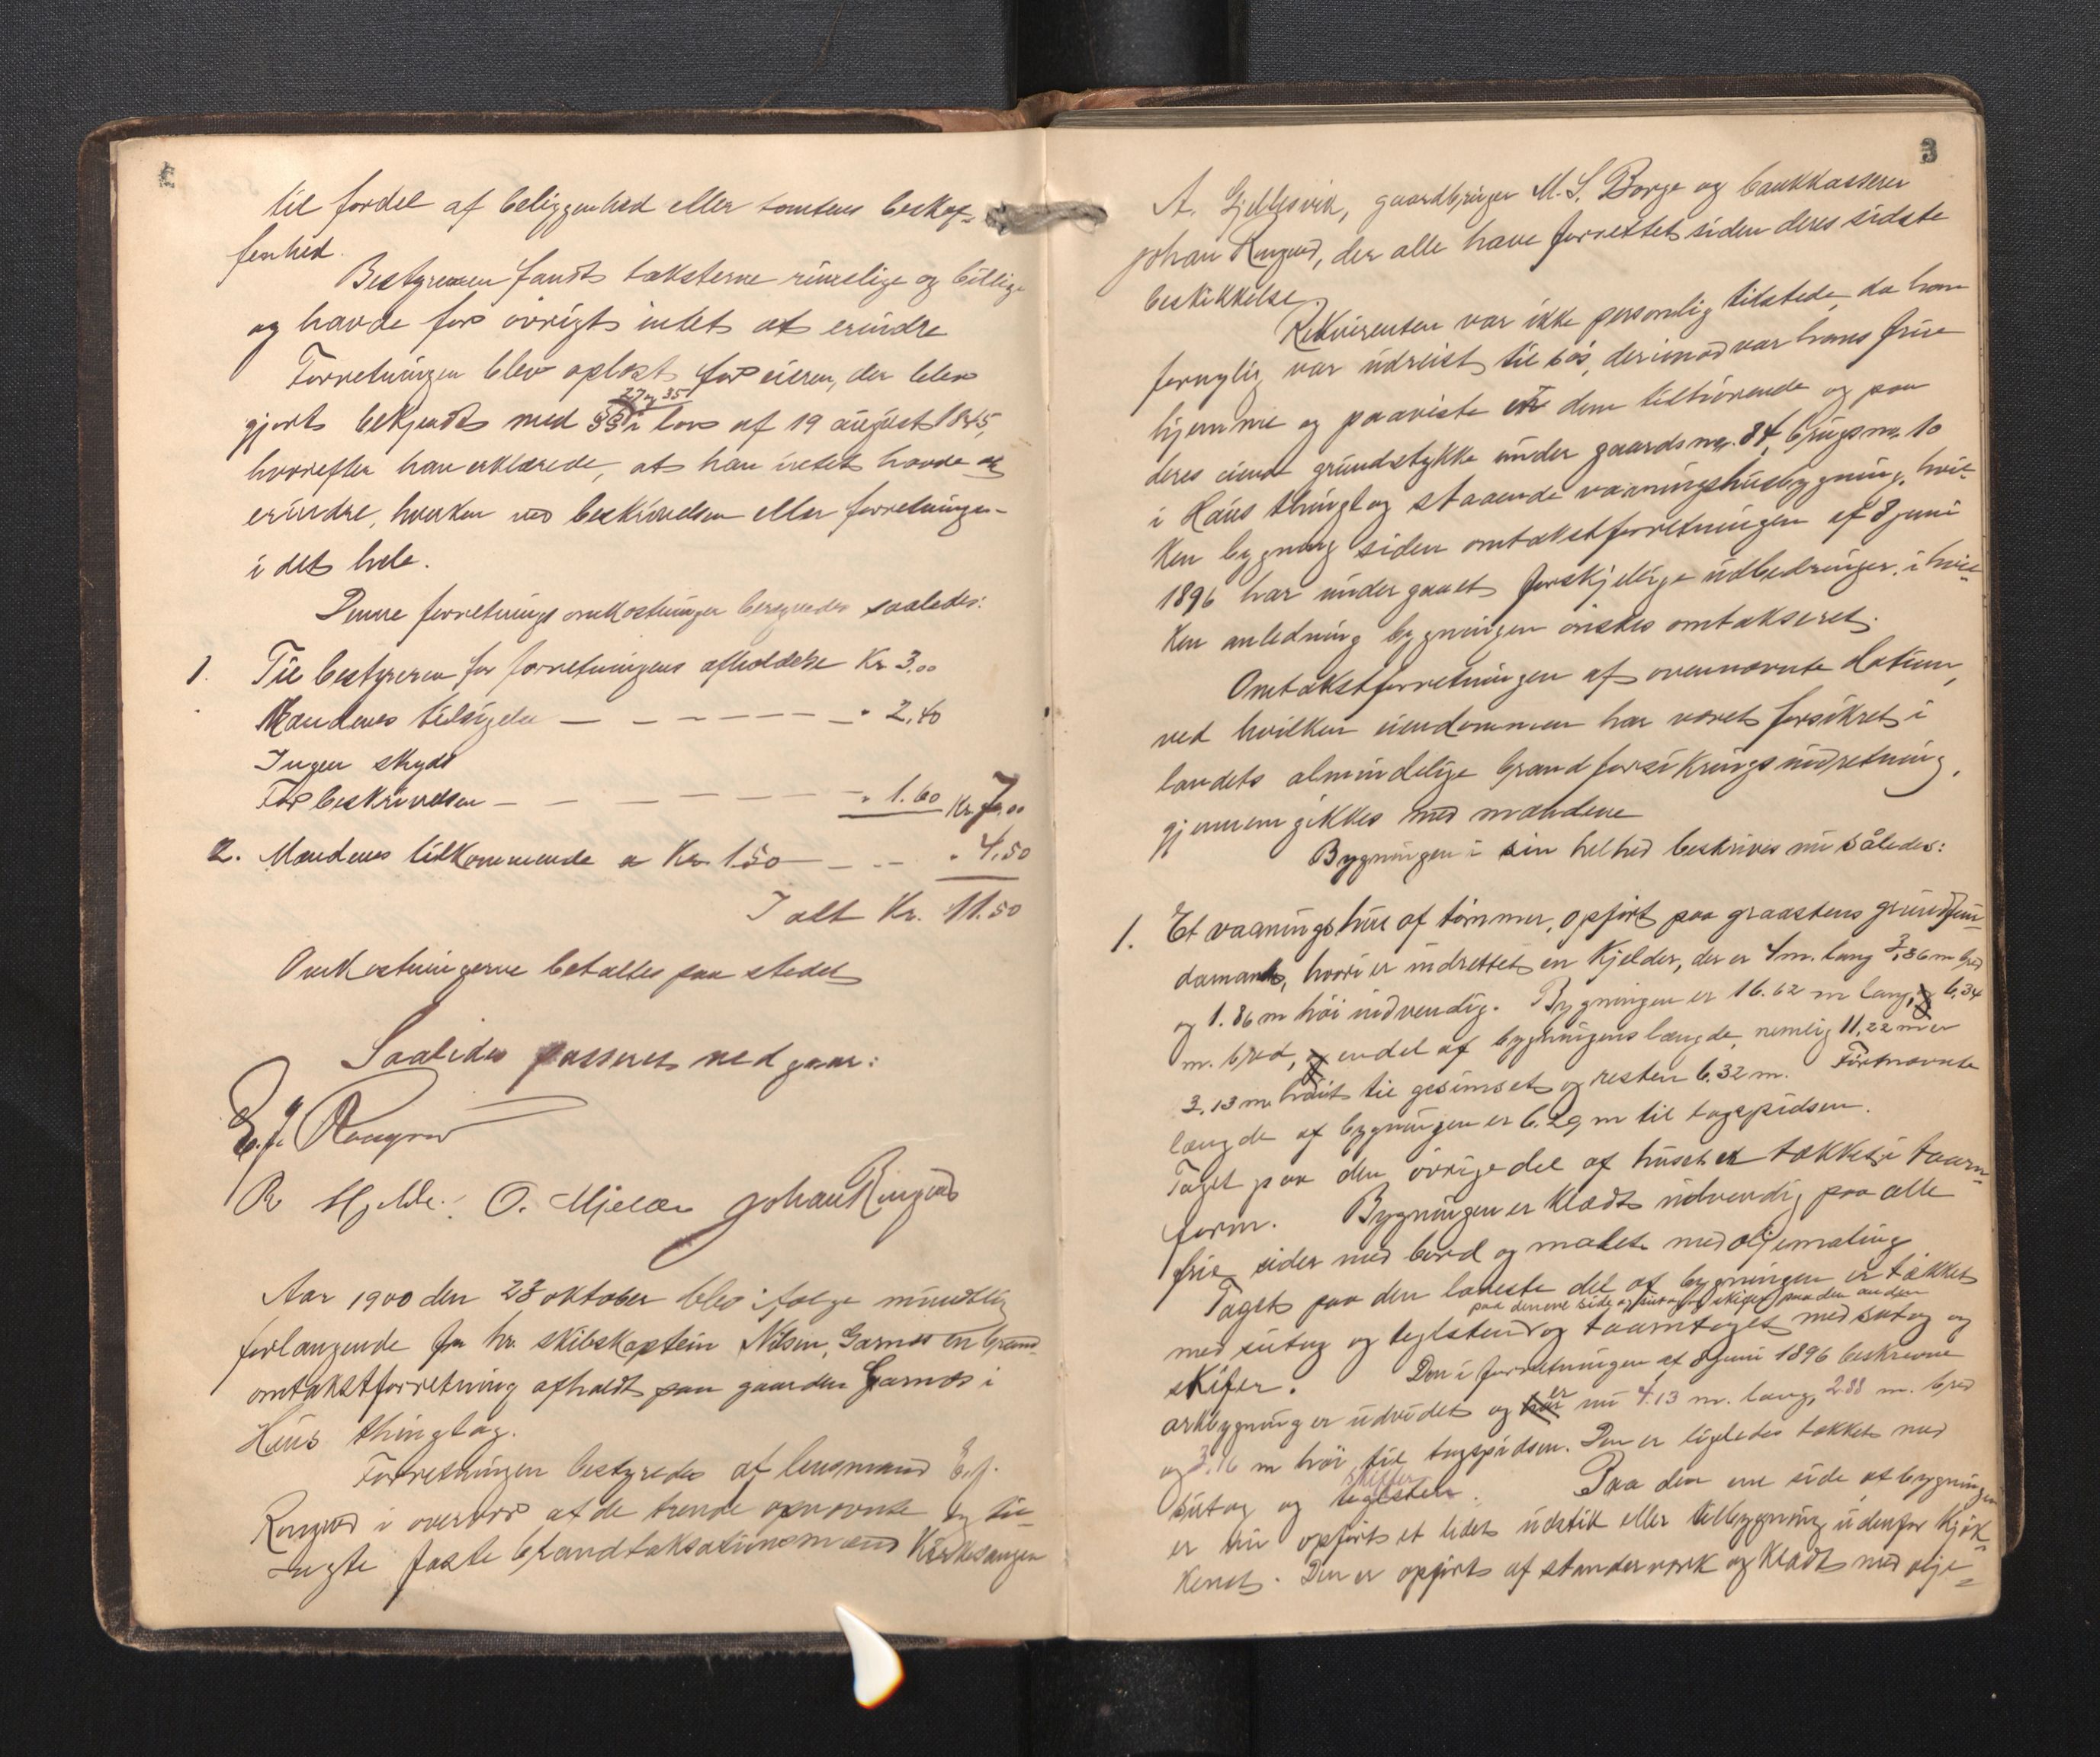 til fordel af beliggenhed eller tomtens beskaf-
fenhed.
Bestyreren fandt taksterne rimelige og billige
og havde for övrigt intet at erindre
Forretningen blev oplæst for eieren, der blev
27 og 35
gjort bekjendt med §§ i lov af 19 august 1845,
hvorefter han erklærede, at han intet havde at
erindre, hverken ved beskrivelsen eller forretningen
i det hele.
Denne forretnings omkostninger beregnedes saaledes:
1. Til bestyreren for forretningens afholdelse Kr 3.00
Mændenes tilsigelse — — — — — — - " 2.40
Ingen skyds
For beskrivelsen — — — — — — " 1.60 Kr. 7.00
2. Mændenes tilkommende a Kr. 1.50 — — - " 4.50
I alt Kr. 11.50
Omkostningerne betaltes paa stedet
Saaledes passeret vedgaar:
E. J. Rongved
R Hjelde. O. Mjelde Johan Ringved
Aar 1900 den 23 oktober blev ifølge mundtlig
forlangende fra hr. skibskaptein Nilsen, Garnes en brand-
omtakstforretning afholdt paa gaarden Garnes i
Haus thinglag.
Forretningen bestyredes af lensmand E. J.
Rongved i overvær af de trende opnævnte og til-
lagte faste brandtaksationsmænd Kirkesanger
3
A. Gjellesvik, gaardbruger M. S. Borge og bankkasserer
Johan Ringved, der alle have forrettet siden deres sidste
beskikkelse.
Rekvirenten var ikke personlig tilstede, da han
fornylig var udreist til søs, derimod var hans frue
hjemme og paaviste et dem tilhørende og paa
deres eiende grundstykke under gaardsnr. 84, brugsnr. 10
i Haus thinglag staaende vaaningshusbygning, hvil-
ken bygning siden omtakstforretningen af 8 juni
1896 har undergaaet forskjelige udbedringer, i hvil-
ken anledning bygningen önskes omtakseret.
Omtakstforretningen af ovennævnte datum,
ved hvilken eiendommen har været forsikret i
landets almindelige brandforsikringsindretning,
gjennemgikkes med mændene
Bygningen i sin helhed beskrives nu således:
1. Et vaaningshus af tömmer, opfört paa graastens grundfun-
dament, hvori er indrettet en Kjelder, der er 4 m. lang 3,86 m bred
og 1.86 m höi indvendig. Bygningen er 16.62 m lang, 6,34
m. bred, endel af bygningens længde, nemlig 11,22 m er
3.13 m höit til gesimset og resten 6.32 m. Förstnævnte
længde af bygningen er 6.29 m til tagspidsen.
Taget paa den övrige del af huset er tækket i taarn-
form. Bygningen er klædt udvendig paa alle
frie sider med bord og malet med oljemaling
Taget paa den laveste del af bygningen er tækket
paa den ene side og sutag og skifer paa den anden
med sutag og teglsten og taarntaget med sutag og
skifer. Den i forretningen af 8 juni 1896 beskrevne
er
arkbygning er udvidet og nu 4.13 m. lang, 2.88 m. bred
og 3.16 m höi til tagspidsen. Den er ligeledes tækket med
skiffer
sutag og teglsten. Paa den ene side af bygningen
er nu opfört et lidet udstik eller tilbygning udenfor kjök-
kenet. Den er opfört af standerværk og klædt med olje-